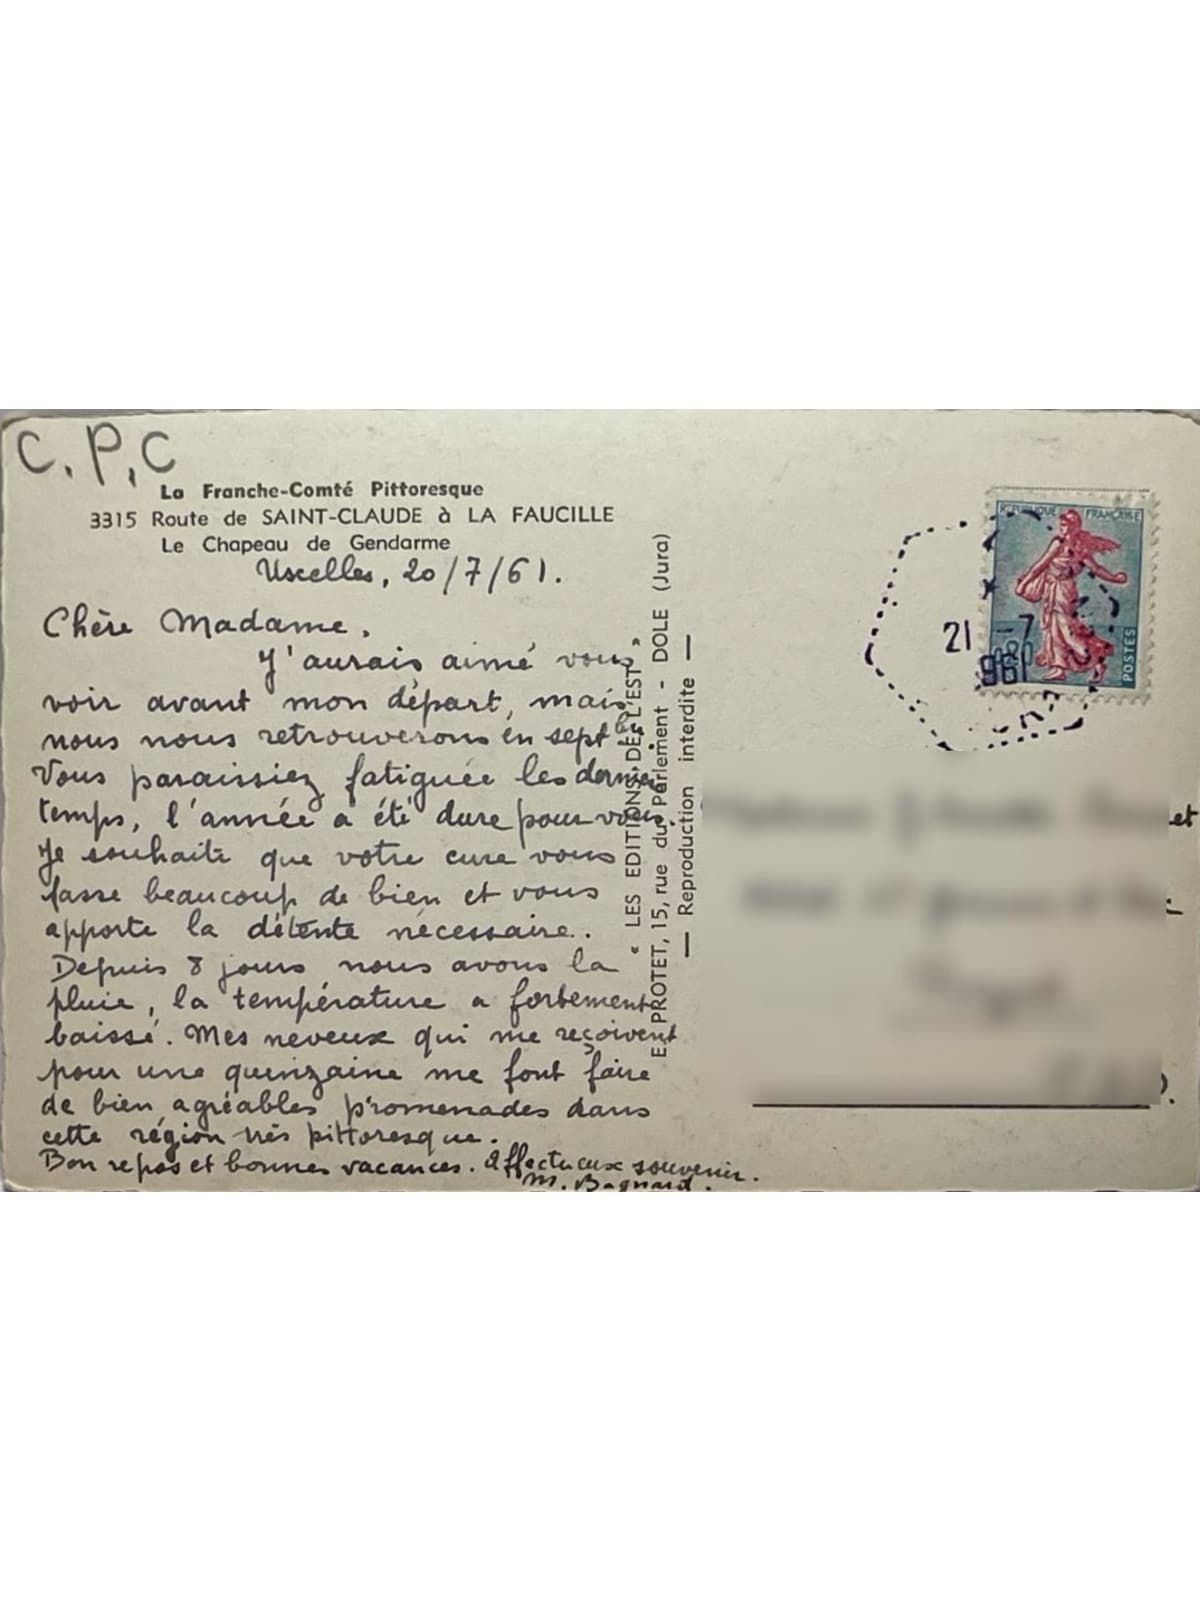 C.P.C
La Franche-Comté Pittoresque
3315 Route de SAINT-CLAUDE à LA FAUCILLE
Le Chapeau de Gendarme
Uxelles, 20/7/61.
Chère Madame,
J'aurais aimé vous
voir avant mon départ, mais
nous nous retrouverons en septbre
Vous paraissiez fatiguée les derniers
temps, l'année a été dure pour vous.
Je souhaite que votre cure vous
fasse beaucoup de bien et vous
apporte la détente nécessaire.
Depuis 8 jours nous avons la
pluie, la température a fortement
baissé. Mes neveux qui me reçoivent
pour une quinzaine me font faire
de bien agréables promenades dans
cette région très pittoresque.
Bon repos et bonnes vacances. Affectueux souvenir.
M. Bagnard.
« LES EDITIONS DE L'EST »
E. PROTET, 15, rue du Parlement - DOLE (Jura)
— Reproduction interdite —
REPUBLIQUE FRANÇAISE
0,20
POSTES
21 -7
1961